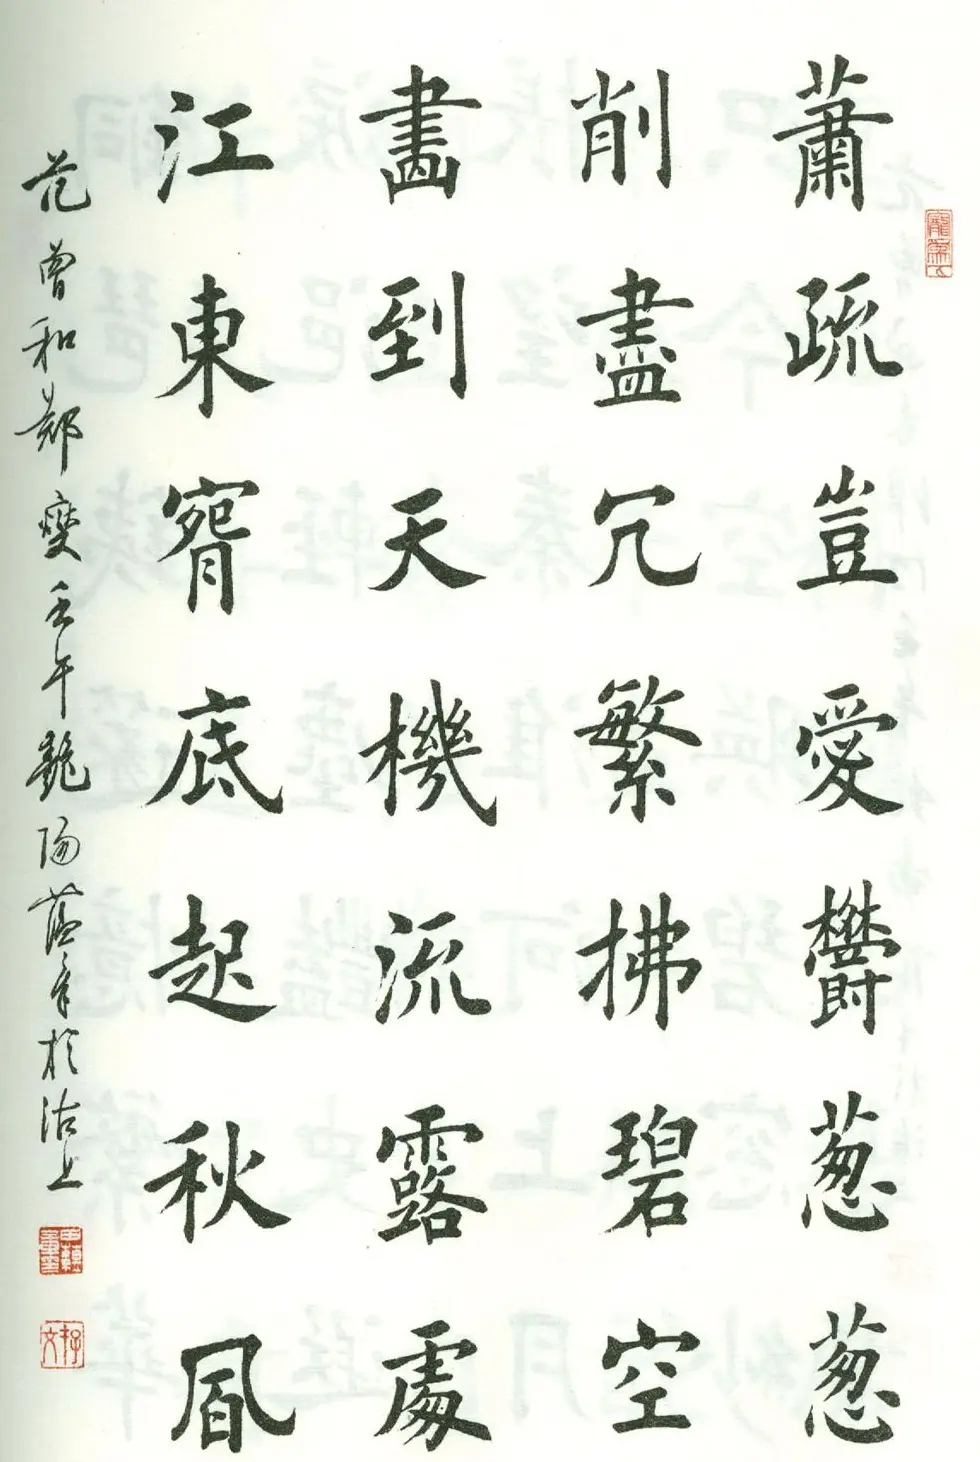 蕭疏豈愛鬱葱葱
削盡冗繁拂碧空
畫到天機流露處
江東腕底起秋風
范曾和鄭燮壬午艷陽章於沽上